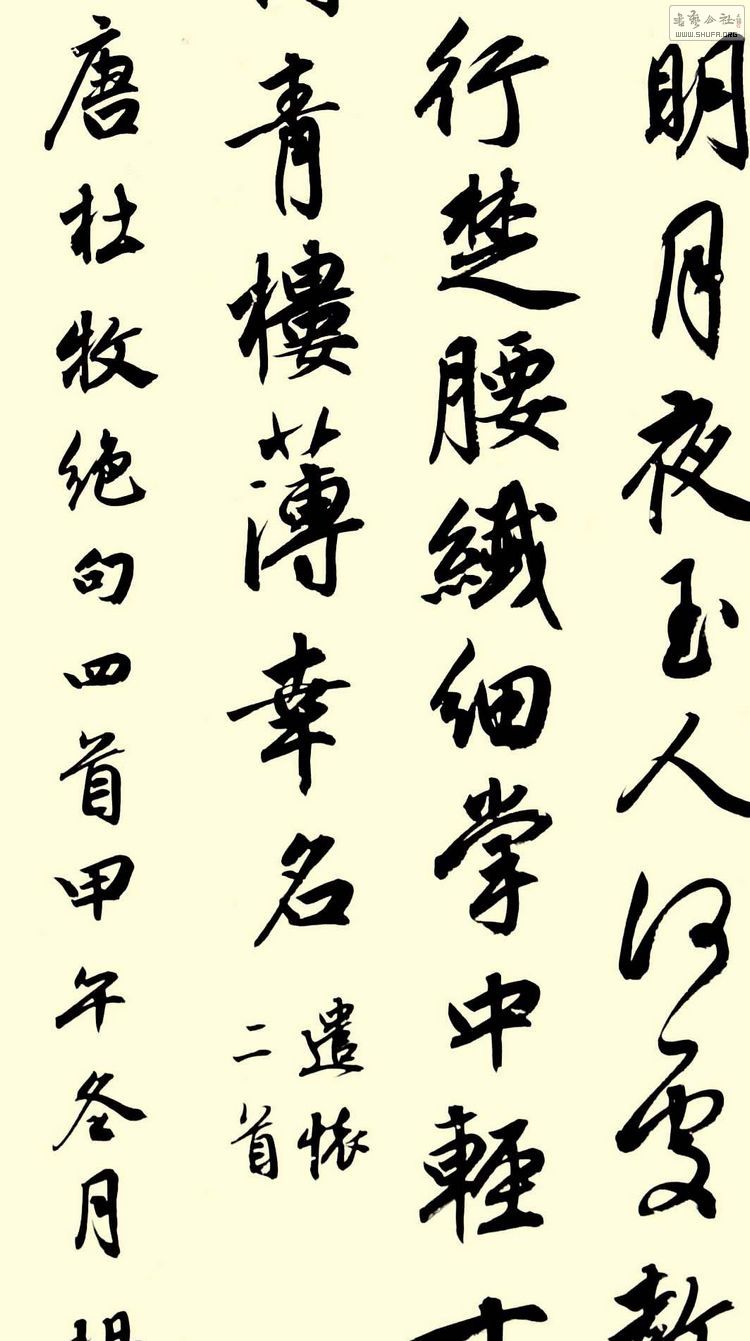 明月夜玉人何處教
行楚腰纖細掌中輕十
青樓薄幸名
遣懷
二首
唐杜牧絕句四首甲午冬月
书艺公社
WWW.SHUFA.ORG